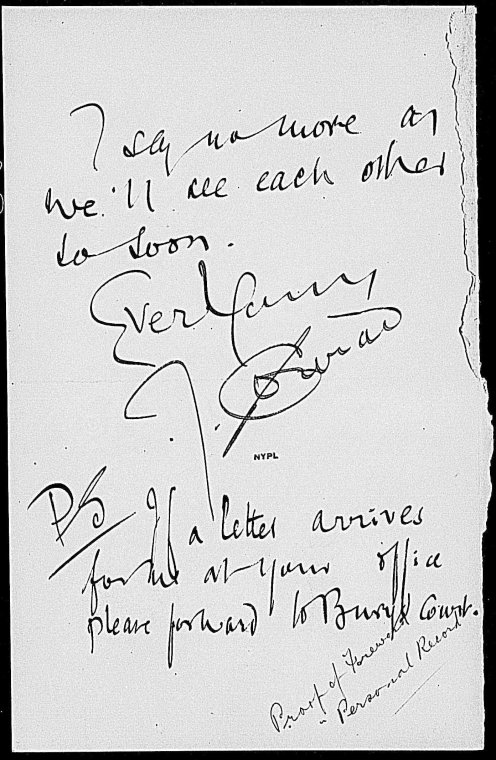 I say no more as
we'll see each other
so soon.
Ever Yours
J. Conrad
NYPL
PS If a letter arrives
for me at your office
please forward to Bury's Court.
Proof of Foreword
" Personal Record